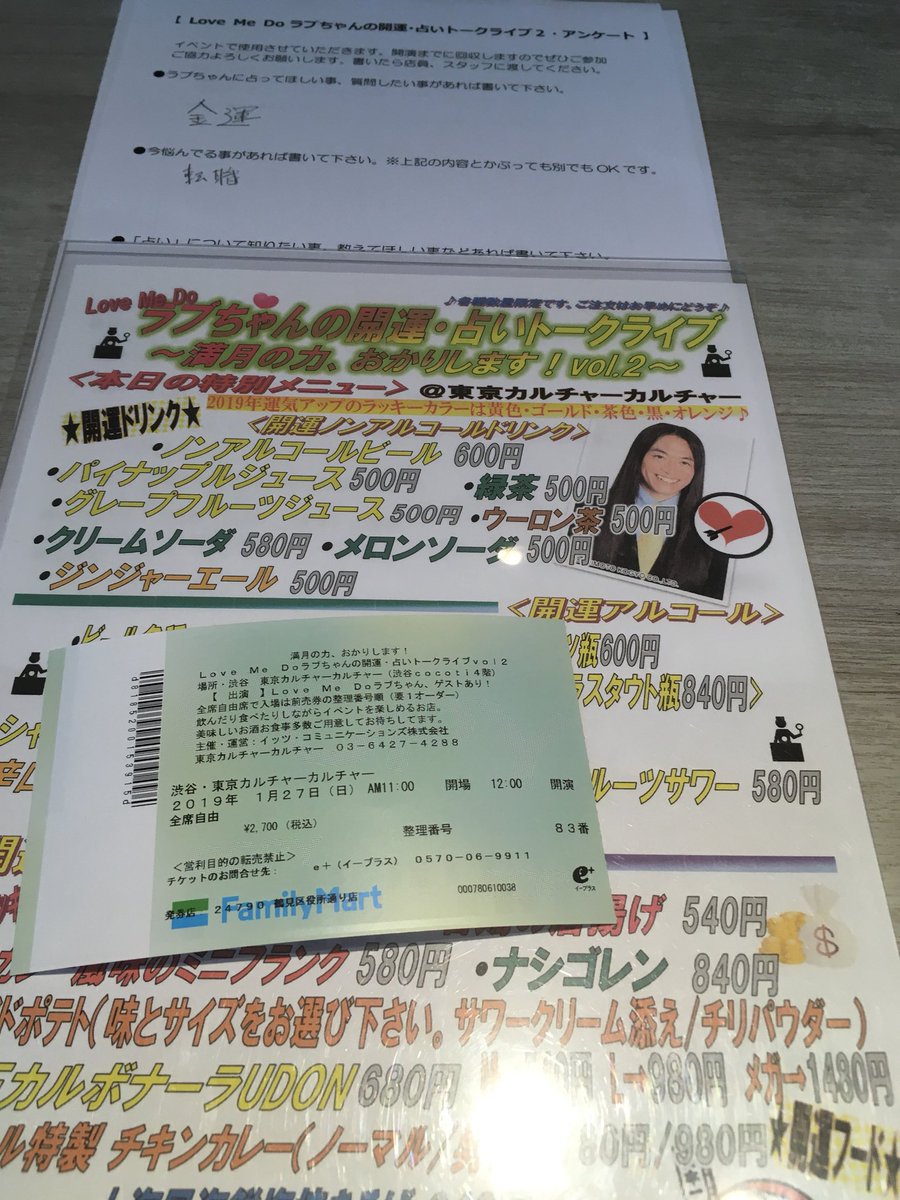 【 Love Me Do ラブちゃんの開運・占いトークライブ２・アンケート 】
イベントで使用させていただきます。開演までに回収しますのでぜひご参加
ご協力よろしくお願いします。書いたら店員、スタッフに渡してください。
●ラブちゃんに占ってほしい事、質問したい事があれば書いて下さい。
金運
●今悩んでる事があれば書いて下さい。※上記の内容とかぶっても別でもOKです。
転職
●「占い」について知りたい事、教えてほしい事などあれば書いて下さい。
Love Me Do
♪各種数量限定です、ご注文はお早めにどうぞ♪
ラブちゃんの開運・占いトークライブ
～満月の力、おかりします！vol.2～
＜本日の特別メニュー＞ @東京カルチャーカルチャー
2019年運気アップのラッキーカラーは黄色・ゴールド・茶色・黒・オレンジ♪
★開運ドリンク★
＜開運ノンアルコールドリンク＞
・ノンアルコールビール 600円
・パイナップルジュース 500円 ・緑茶 500円
・グレープフルーツジュース 500円 ・ウーロン茶 500円
・クリームソーダ 580円 ・メロンソーダ 500円
・ジンジャーエール 500円
MOTO KOGYO CO.,LTD.
＜開運アルコール＞
瓶600円
ラスタウト瓶840円＞
ルーツサワー 580円
満月の力、おかりします！
Ｌｏｖｅ Ｍｅ Ｄｏラブちゃんの開運・占いトークライブｖｏｌ２
場所・渋谷 東京カルチャーカルチャー（渋谷ｃｏｃｏｔｉ４階）
【 出演 】Ｌｏｖｅ Ｍｅ Ｄｏラブちゃん、ゲストあり！
全席自由席で入場は前売券の整理番号順（要１オーダー）
飲んだり食べたりしながらイベントを楽しめるお店。
美味しいお酒お食事多数ご用意してお待ちしてます。
主催・運営：イッツ・コミュニケーションズ株式会社
東京カルチャーカルチャー ０３-６４２７-４２８８
渋谷・東京カルチャーカルチャー
２０１９年 １月２７日（日） AM11:00 開場 12:00 開演
全席自由
¥2,700（税込）
整理番号 ８３番
＜営利目的の転売禁止＞
チケットのお問合せ先： e+（イープラス） 0570-06-9911
e+
イープラス
000780610038
発券店 24790 鶴見区役所通り店
FamilyMart
d885200153915d
揚げ 540円
風味のミニフランク 580円 ・ナシゴレン 840円
ドポテト（味とサイズをお選び下さい。サワークリーム添え/チリパウダー）
カルボナーラUDON 680円 L→980円 メガ→1480円
ル特製 チキンカレー（ノーマル/ 80円/980円
★開運フード★